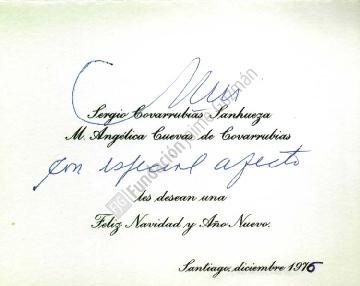 Sergio Covarrubias Sanhueza
M. Angélica Cuevas de Covarrubias
con especial afecto
les desean una
Feliz Navidad y Año Nuevo.
Santiago, diciembre 1976
Fundación Jaime Guzmán